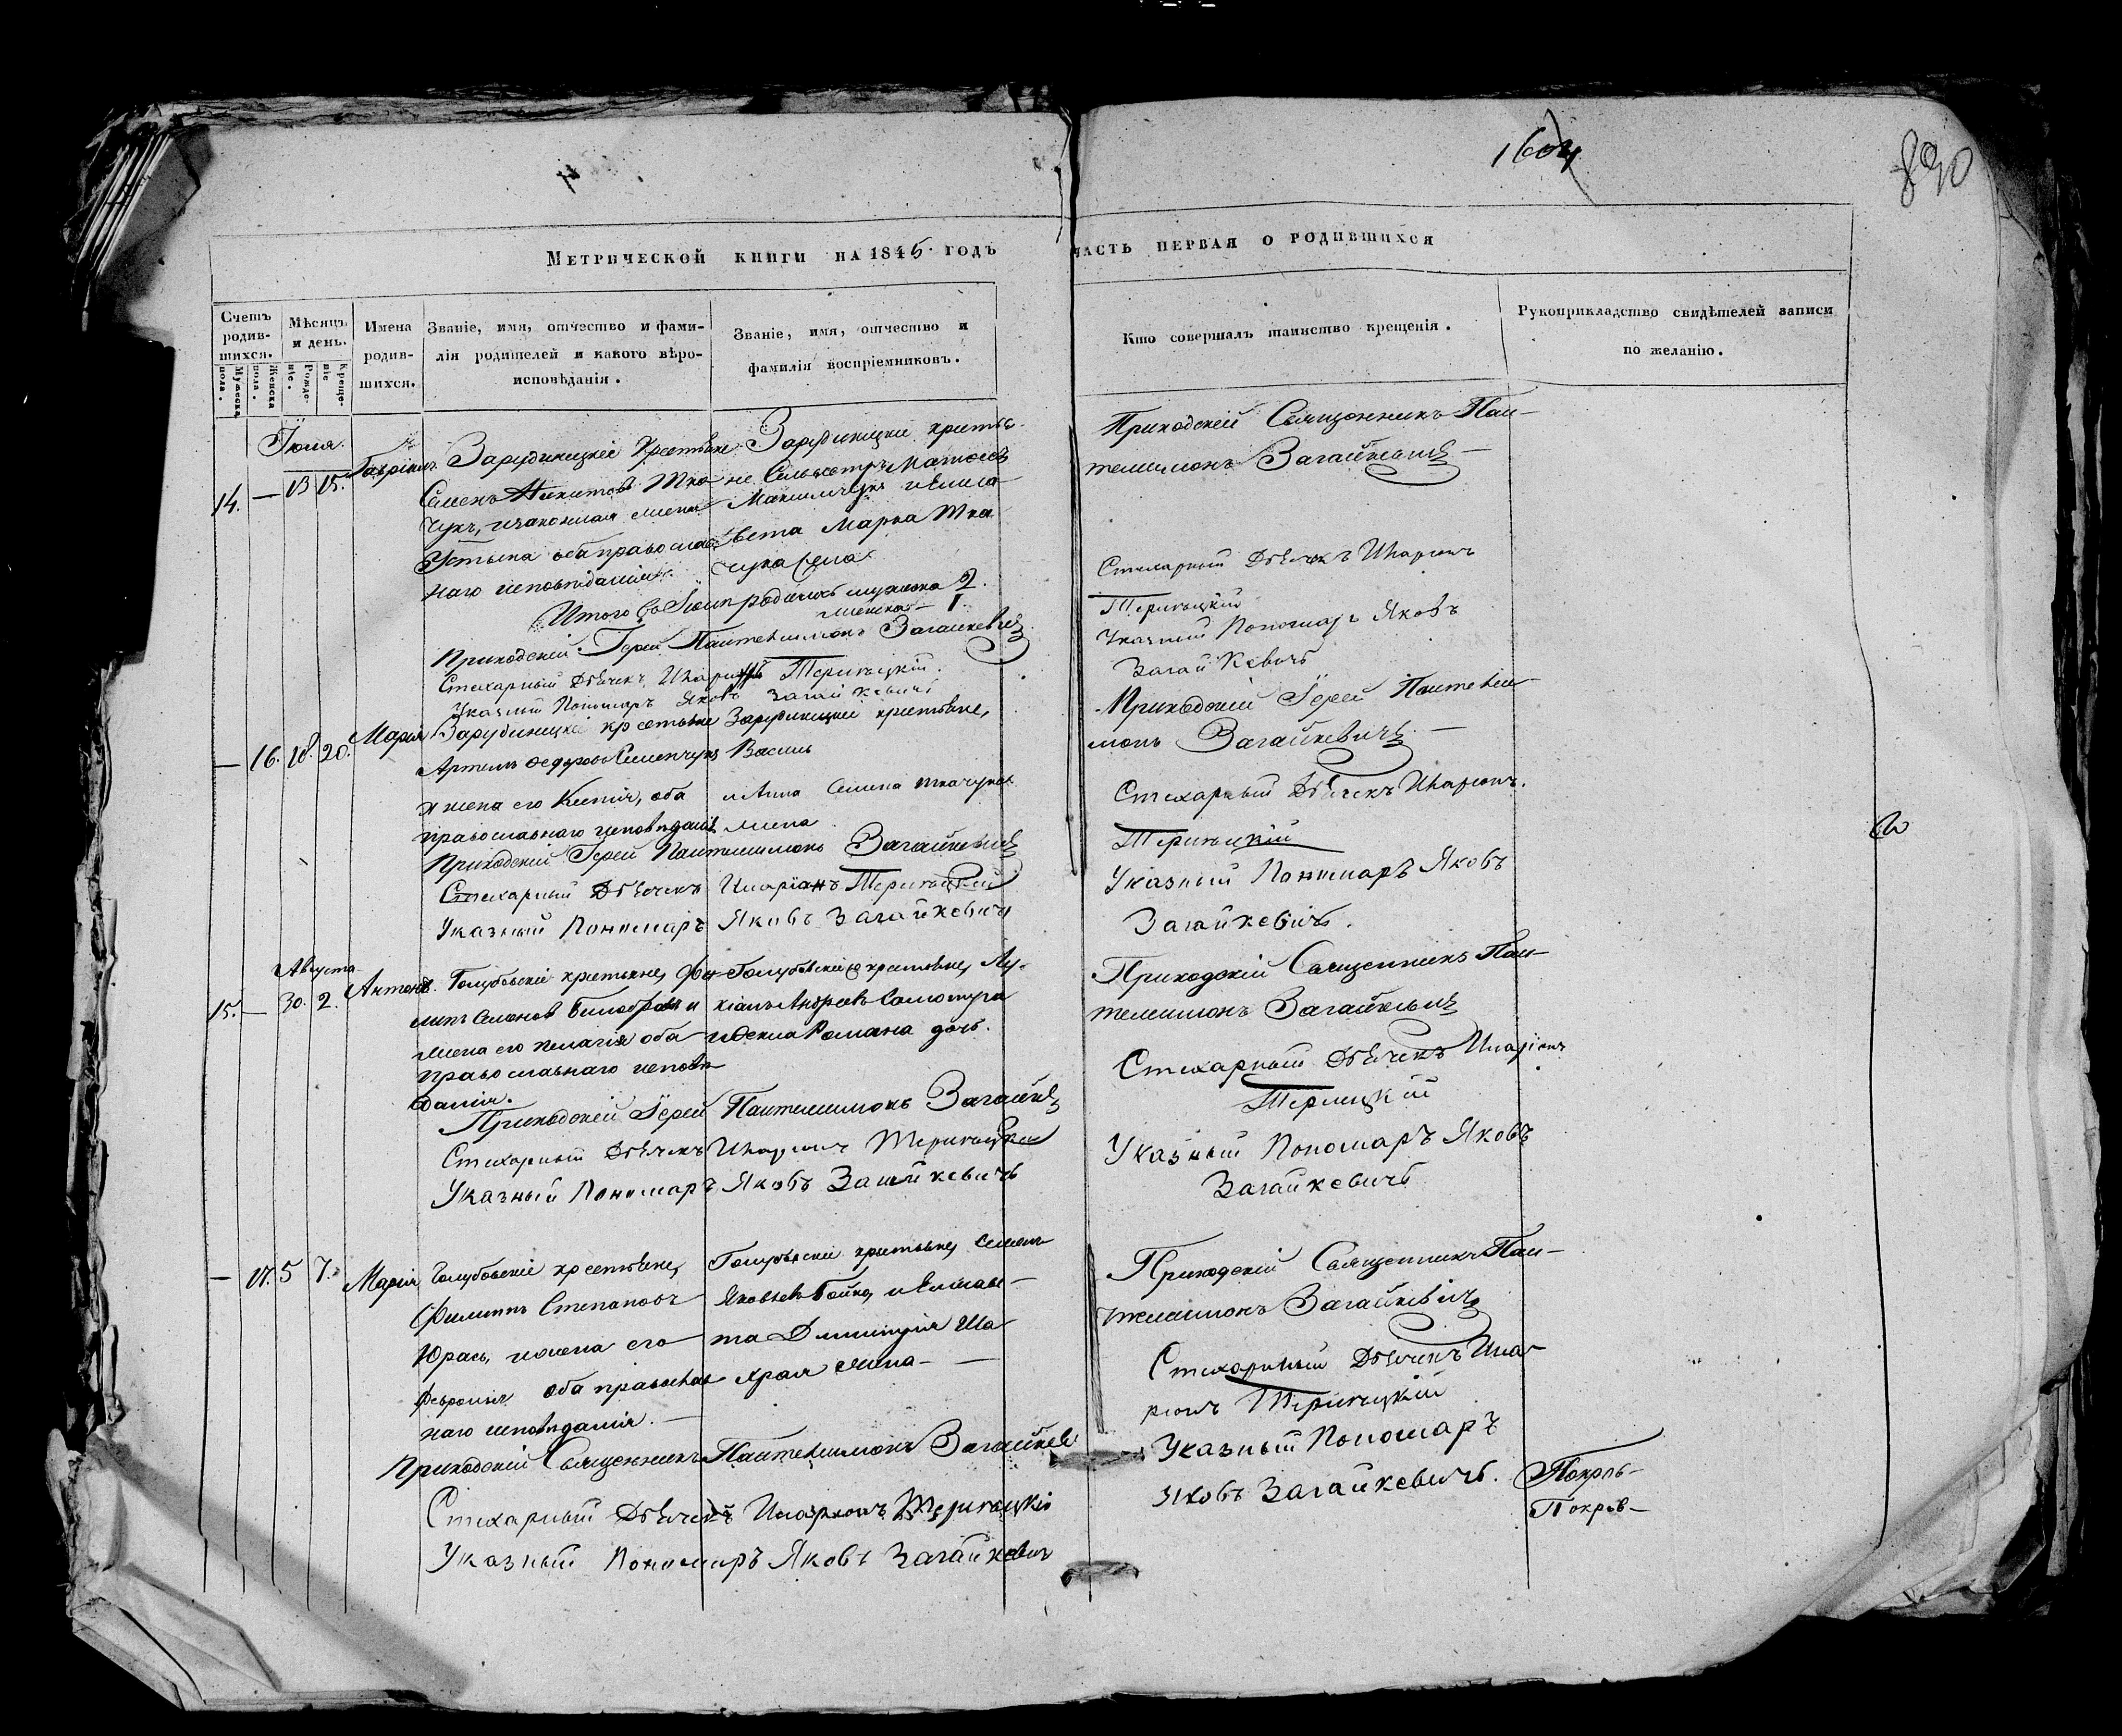 1604
830
Метрической книги на 1845 годъ
часть первая о родившихся
Счетъ родив-шихся.
Мужеска пола.
Женска пола.
Мѣсяцъ и день.
Рожде-ніе.
Креще-ніе
Имена родив-шихся.
Званіе, имя, отчество и фами-
лія родителей и какого вѣро-
исповѣданія.
Званіе, имя, отчество и
фамилія воспріемниковъ.
Кто совершалъ таинство крещенія.
Рукоприкладство свидѣтелей записи
по желанію.
Іюля.
14. — 13 15. Гавріилъ
Зарудницкіе Крестьяне
Семенъ Никитовъ Тка
чукъ, и законная жена
Устына оба православ
наго исповѣданія.
Зарудницкіе крестья-
не Сельвестръ
Максимчукъ и Елиса
вета Марка Тка
чука жена
Приходскій Священникъ Пан-
телимонъ Загайкевичъ
Стихарный Дьячекъ Иларіонъ
Терлецкій
Указный Пономаръ Яковъ
Загайкевичъ
Итого въ Іюлѣ родилось мужеска 2.
женска — 1.
Приходскій Іерей Пантелимонъ Загайкевичъ
Стихарный Дьячекъ Иларіонъ Терлецкій.
Указный Пономаръ Яковъ Загайкевичъ
— 16. 18. 20. Марія
Зарудницкіе крестьяне
Артемъ Федоровъ Семенчукъ
и жена его Ксенія, оба
православнаго исповѣданія
Зарудницкіе крестьяне,
Василь
и Анна Семена Ткачука
жена
Приходскій Іерей Пантели-
монъ Загайкевичъ —
Стихарный Дьячекъ Иларіонъ.
Терлецкій
Указный Пономаръ Яковъ
Загайкевичъ.
Приходскій Іерей Пантелимонъ Загайкевичъ
Стихарный Дьячекъ Иларіонъ Терлецкій
Указный Пономаръ Яковъ Загайкевичъ
Августа
15. — 30. 2. Антонъ.
Голубовскіе крестьяне, Фи-
липъ Семеновъ и
жена его Пелагія оба
православнаго исповѣ
данія.
Голубовскіе крестьяне, Лу-
кіанъ Андреевъ
и Фекла Романа дочь.
Приходскій Священникъ Пан-
телимонъ Загайкевичъ
Стихарный Дьячекъ Иларіонъ
Терлецкій
Указный Пономаръ Яковъ
Загайкевичъ
Приходскій Іерей Пантелимонъ
Стихарный Дьячекъ Иларіонъ Терлецкій
Указный Пономаръ Яковъ Загайкевичъ
— 17. 5 7. Марія
Голубовскіе крестьяне,
Филиппъ Степановъ
Юрась, и жена его
Февронія оба православ
наго исповѣданія. —
Голубовскіе крестьяне, Семенъ
Яковлевъ Бойко, и Елисаве-
та Димитрія
жена —
Приходскій Священникъ Пан-
телимонъ Загайкевичъ
Стихарный Дьячекъ Ила-
ріонъ Терлецкій
Указный Пономаръ
Яковъ Загайкевичъ.
Приходскій Священникъ Пантелимонъ Загайкеви
Стихарный Дьячекъ Иларіонъ Терлецкій
Указный Пономаръ Яковъ Загайкевичъ